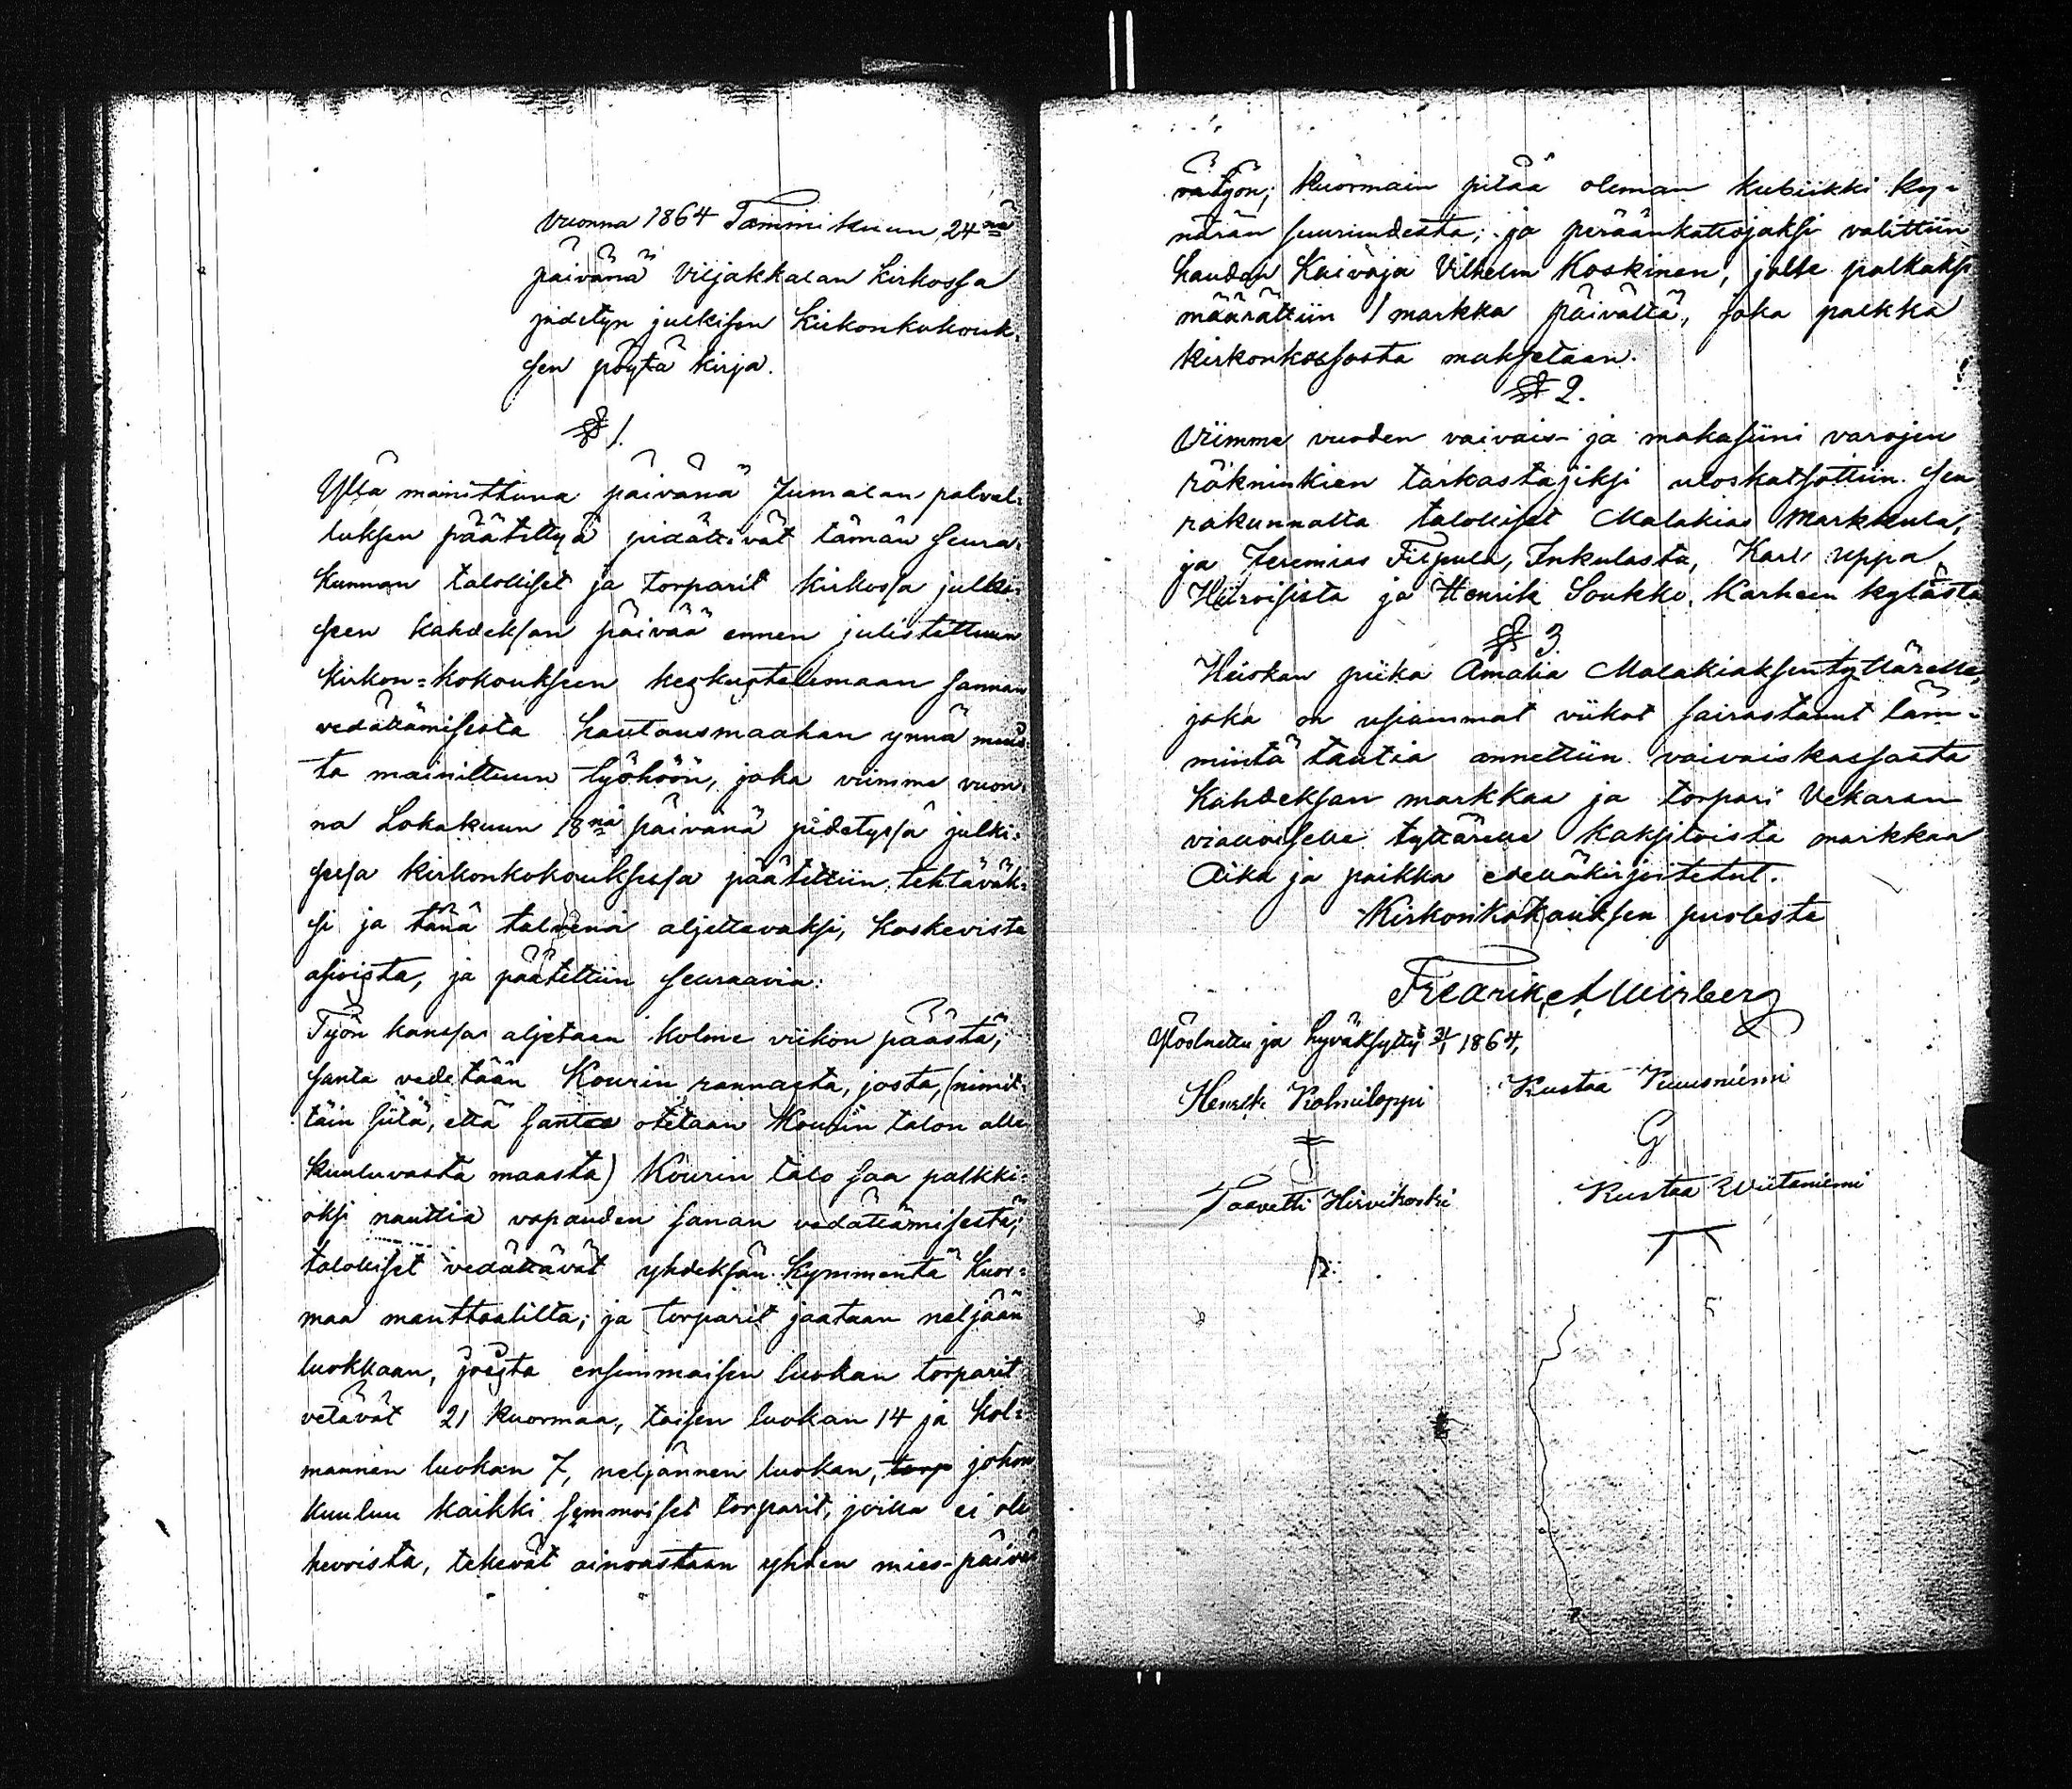 Vuonna 1864 Tammikuun 24nä
päivänä Viljakkalan Kirkossa
pidetyn julkisen Kirkonkokouk-
sen pöytä kirja.
§ 1.
Yllä mainittuna päivänä Jumalan palvel-
luksen päätettyä pidättivät tämän seura-
kunnan talolliset ja torparit kirkossa julki-
sen kahdeksan päivää ennen julistettuun
Kirkon-kokouksen keskustelemaan sannan
vedättämisestä hautausmaahan ynnä muus-
ta mainittuun työhöön, joka viimme vuon-
na Lokakuun 18nä päivänä pidetyssä julki-
sessa kirkonkokouksessa päätettiin tehtäväk-
si ja tänä talvena aljettavaksi, koskevista
asioista, ja päätettiin seuraavia:
Työn kanssa aljetaan kolme viikon päästä;
santa vedetään Kourin rannasta, josta, (nimit-
täin siitä, että santaa otetaan Kourin talon alle
kuuluvasta maasta) Kourin talo saa palkki-
oksi nauttia vapauden sanan vedättämisestä;
talolliset vedättävät yhdeksän kymmentä kuor-
maa manttaalilta; ja torparit jaataan neljään
luokkaan, joista ensimmaisen luokan torparit
vetävät 21 kuormaa, toisen luokan 14 ja kol-
mannen luokan 7, neljännen luokan, torp johon
kuuluu kaikki semmoiset torparit, joilla ei ole
hevoista, tekevät ainoastaan yhden mies-päivä
vätyön; kuormain pitää oleman kubiikki ky-
närän suuruudesta; ja peräänkatsojaksi valittiin
haudan kaivaja Vilhelm Koskinen, jolle palkaksi
määrättiin 1 markka päivältä, joka palkka
kirkonkassasta maksetaan.
§ 2.
Viimme vuoden vaivais- ja makasiini varojen
räkninkien tarkastajiksi uloskatsottiin seu
rakunnalta talolliset Malakias Markkula,
ja Jeremias Filpula, Inkulasta, Karl Uppa
Hiiroisista ja Henrik Soukko, Karheen kylästä
§ 3.
Heiskan piika Amalia Malakiaksentyttärelle,
joka on usiammat viikot sairastanut läm-
mintä tautia annettiin vaivaiskassasta
kahdeksan markkaa ja torpari Vekaran
vialloiselle tyttärelle kaksitoista markkaa
Aika ja paikka edelläkirjoitetut.
Kirkonkokouksen puolesta
Fredrik
Ylösluettu ja hyväksytty 31/1 1864,
Henrik Kolmiloppi Kustaa Kuusniemi
G
Taavetti Hirvikoski Kustaa Wiitaniemi